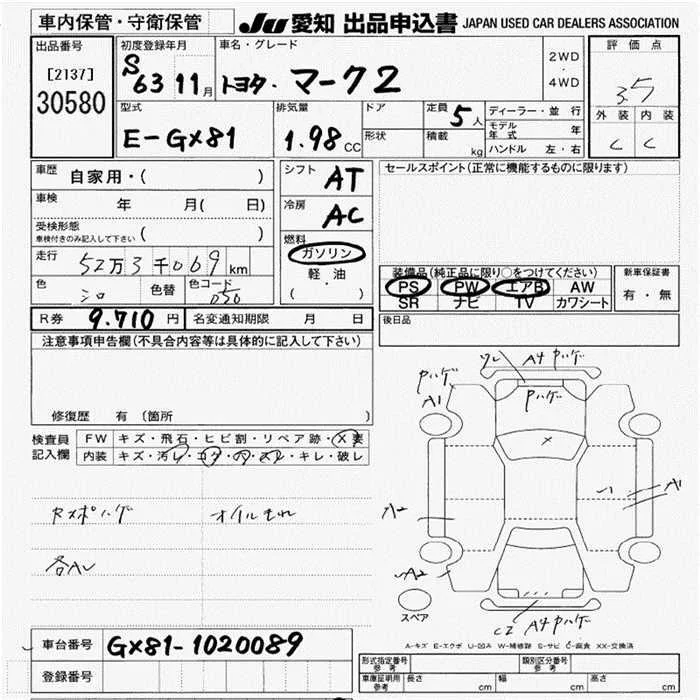 車内保管・守衛保管
JU 愛知 出品申込書 JAPAN USED CAR DEALERS ASSOCIATION
出品番号
[2137]
30580
初度登録年月
S63 11月
車名・グレード
トヨタ・マーク2
2WD
・
4WD
評価点
3.5
外装 内装
C C
型式
E-GX81
排気量
1.98 CC
ドア
形状
定員 5人
積載 kg
ディーラー・並行
モデル年式 年
ハンドル 左・右
車歴 自家用・( )
車検 年 月( 日)
受検形態
車検付きのみ記入して下さい ( )
走行 52万3千069km
色 シロ 色替 色コード 050
シフト AT
冷房 AC
燃料
ガソリン
軽・油
( ・ )
セールスポイント(正常に機能するものに限ります)
装備品(純正品に限り○をつけてください)
PS PW エアB AW
SR ナビ TV カワシート
新車保証書
有・無
R券 9.710円 名変通知期限 月 日
後日品
注意事項申告欄(不具合内容等は具体的に記入して下さい)
修復歴 有 (箇所 )
検査員
記入欄
FW キズ・飛石・ヒビ割・リペア跡・X要
内装 キズ・汚レ・コゲ・穴・スレ・キレ・破レ
Rスポハゲ オイルもれ
各AU
ワレ A4 Pハゲ
Pハゲ
A1
Pハゲ
X
A1
A2
A2
スペア
C2 A4 Pハゲ
A-キズ E-エクボ U-凹み W-補修跡 S-サビ C-腐食 XX-交換済
車台番号 GX81-1020089
登録番号
形式指定番号 参考
類別区分番号 参考
車庫証明用 参考 長さ cm 幅 cm 高さ cm